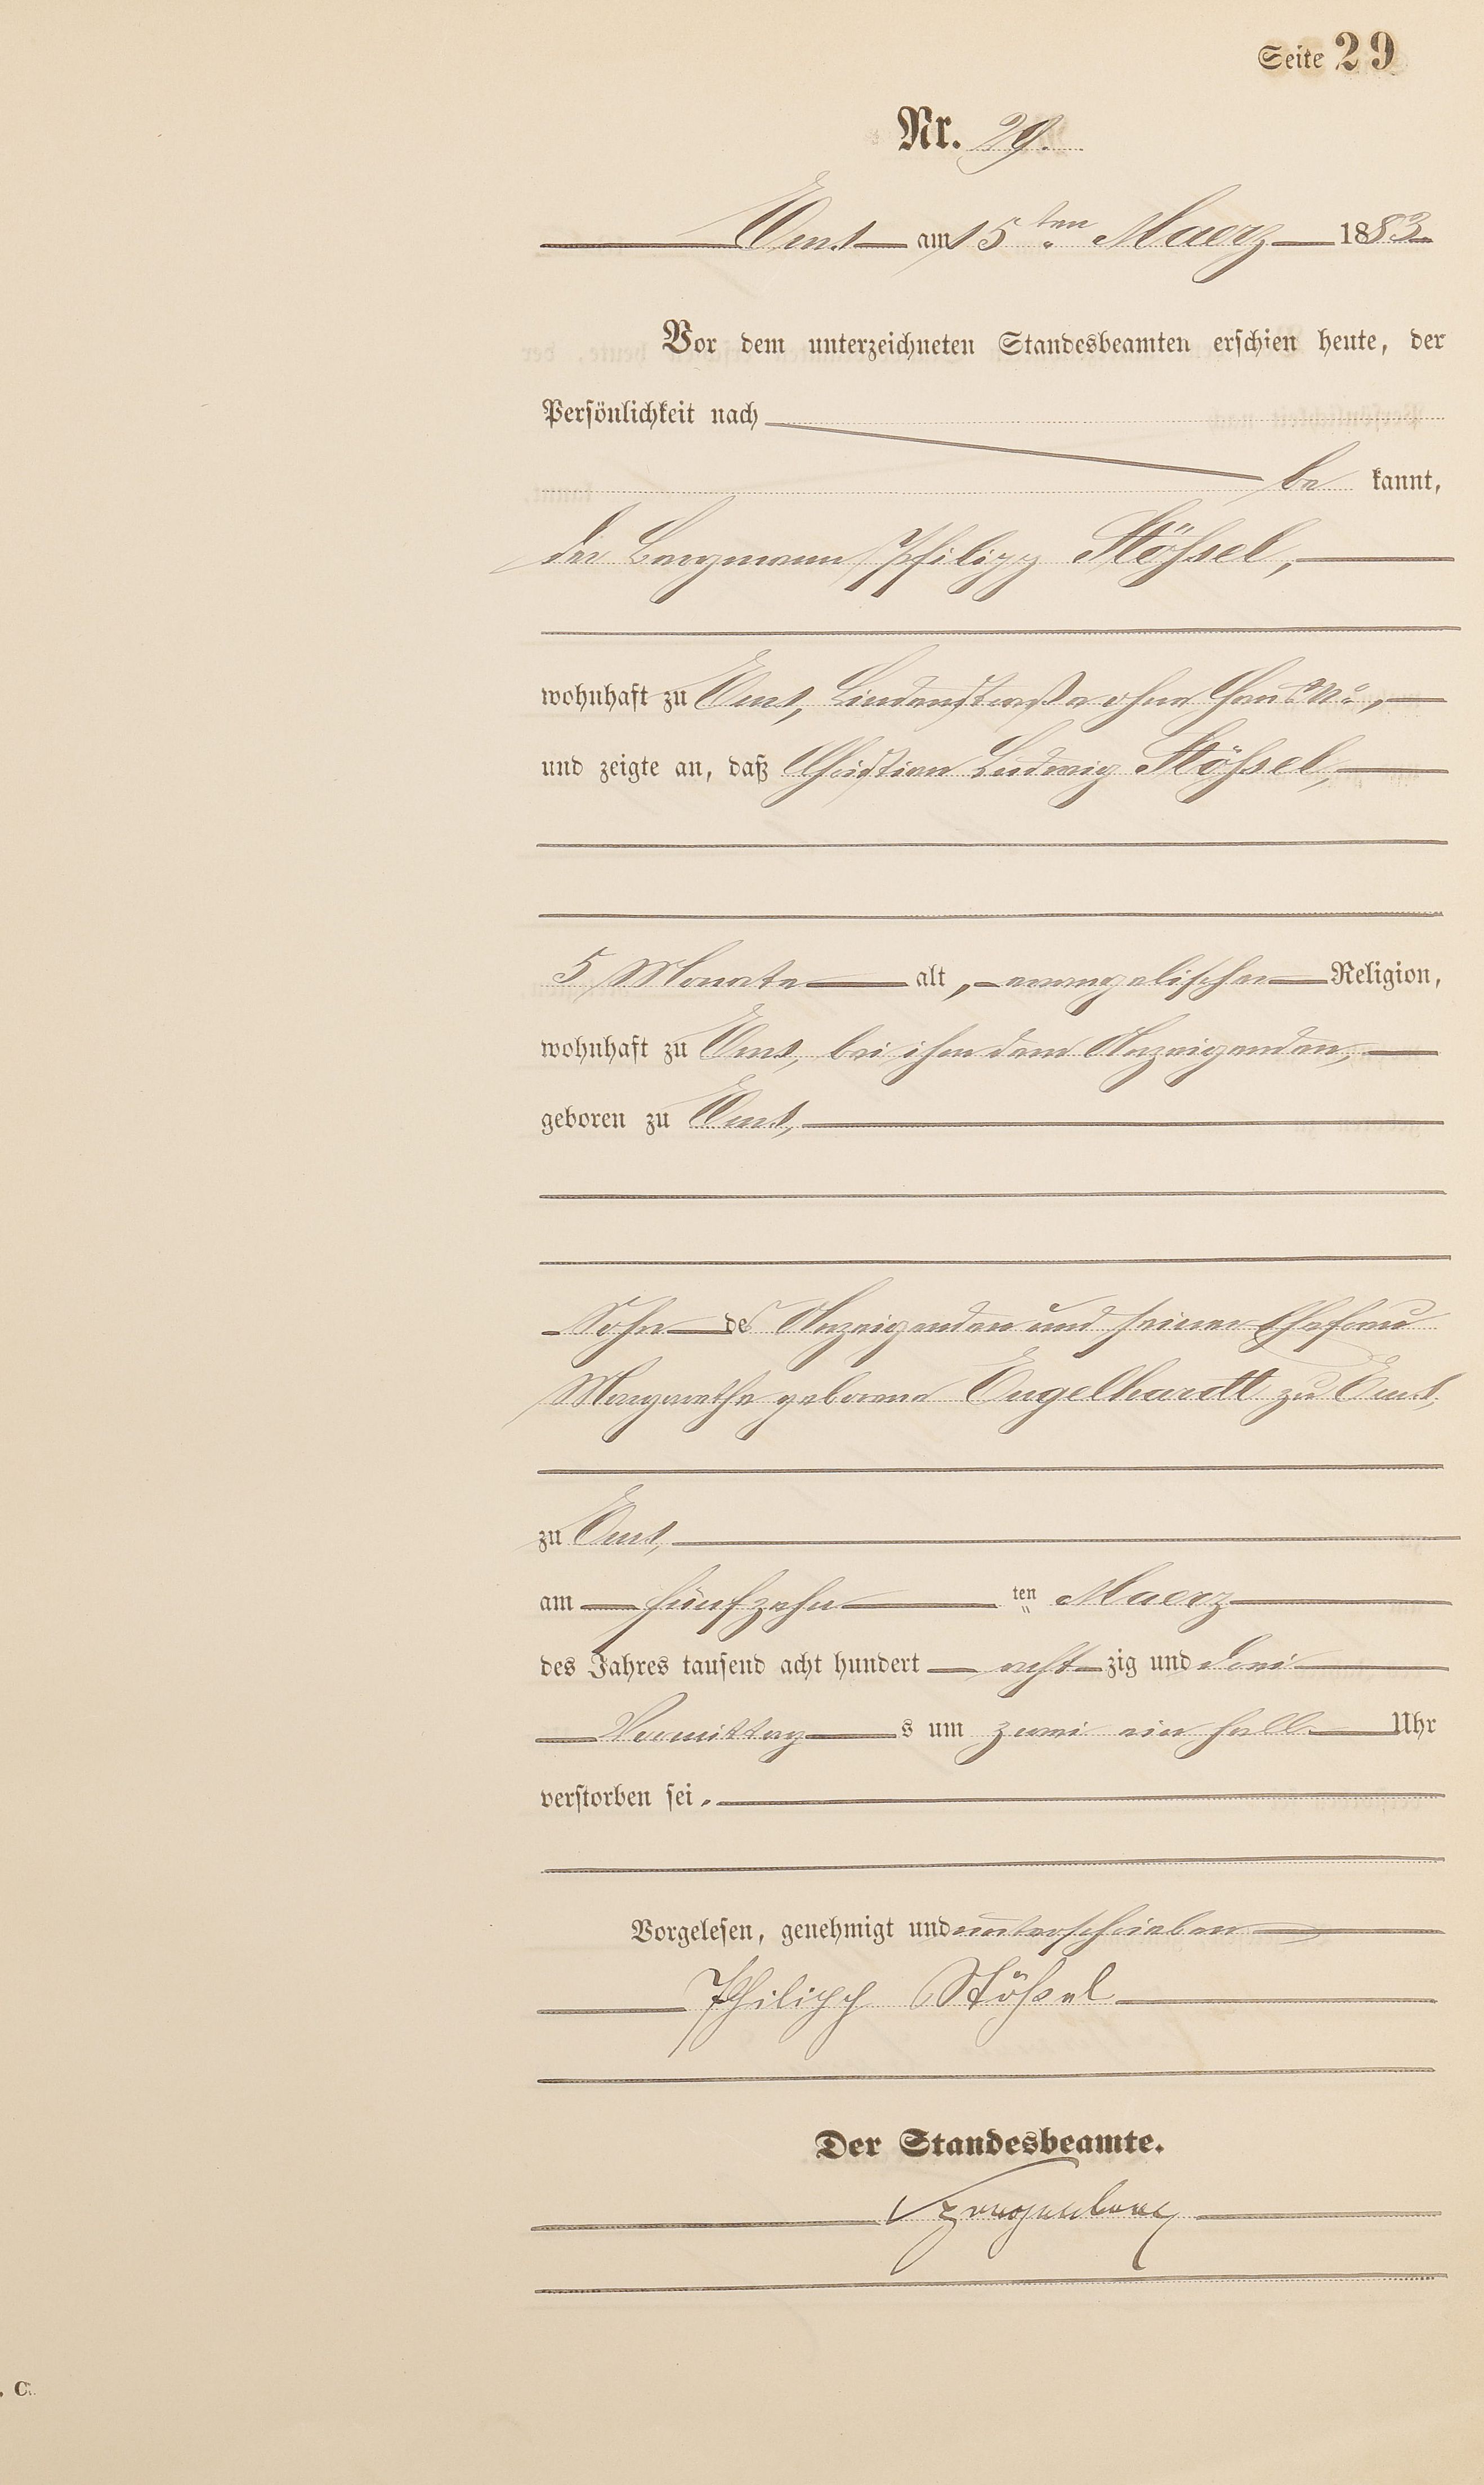 Seite 29
Nr. 29.
Ems am 15ten Maerz 1883.
Vor dem unterzeichneten Standesbeamten erschien heute, der
Persönlichkeit nach
be kannt,
der Bergmann Philipp Stößel,
wohnhaft zu Ems, Lindenstraße ohne Haus Nr.,
und zeigte an, daß Christian Ludwig Stößel,
5 Monate alt, evangelischer Religion,
wohnhaft zu Ems, bei ihm dem Anzeigenden,
geboren zu Ems,
Sohn des Anzeigenden und seiner Ehefrau
Margarethe geborene Engelhardt zu Ems,
zu Ems,
am fünfzehn ten Maerz
des Jahres tausend acht hundert acht zig und drei
Vormittag s um zwei ein halb Uhr
verstorben sei.
Vorgelesen, genehmigt und unterschrieben
Philipp Stößel
Der Standesbeamte.
. C.